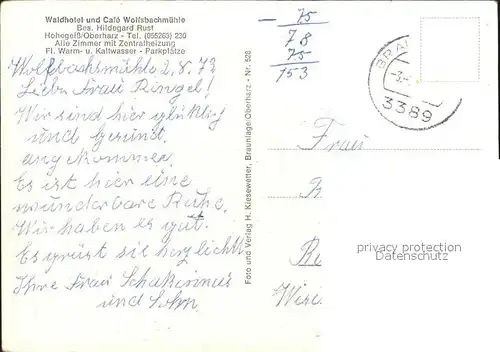 Waldhotel und Café Wolfsbachmühle
Bes. Hildegard Rust
Hohegeiß/Oberharz - Tel. (055263) 230
Alle Zimmer mit Zentralheizung
Fl. Warm- u. Kaltwasser - Parkplätze
Wolfbachsmühle 2.8.72
Liebe Frau Ringel!
Wir sind hier glücklich
und gesund
angekommen.
Es ist hier eine
wunderbare Ruhe.
Wir haben es gut.
Es grüst sie herzlichst
Ihre Frau
und Sohn.
Foto und Verlag H. Kiesewetter, Braunlage/Oberharz - Nr. 528
75
78
75
153
BRA
3389
Frau
privacy protection
Datenschutz